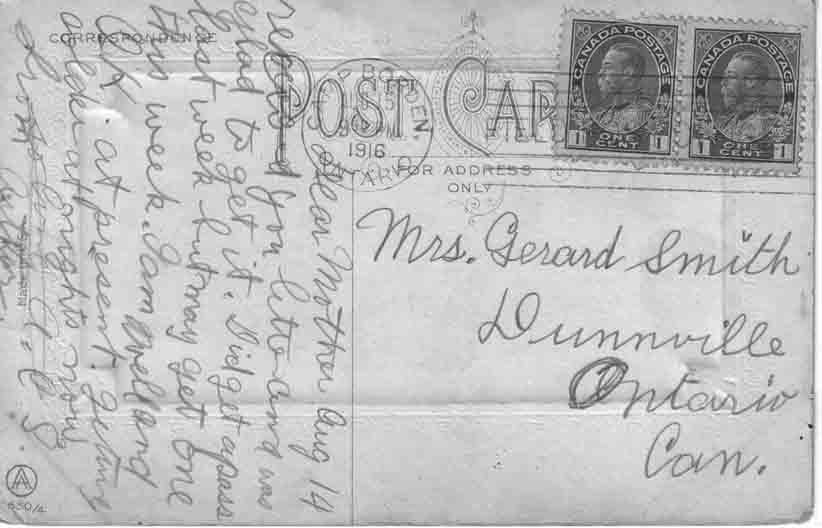 CORRESPONDENCE
POST CARD
FOR ADDRESS
ONLY
CANADA POSTAGE
1 ONE CENT 1
CANADA POSTAGE
1 ONE CENT 1
BORDEN
1916
ONTARIO
Mrs. Gerard Smith
Dunnville
Ontario
Can.
Dear Mother Aug 14
received you letter and was
glad to get it. Did get a pass
last week but may get one
this week. I am well and
O.K. at present. Getting
cold at nights now
650/4